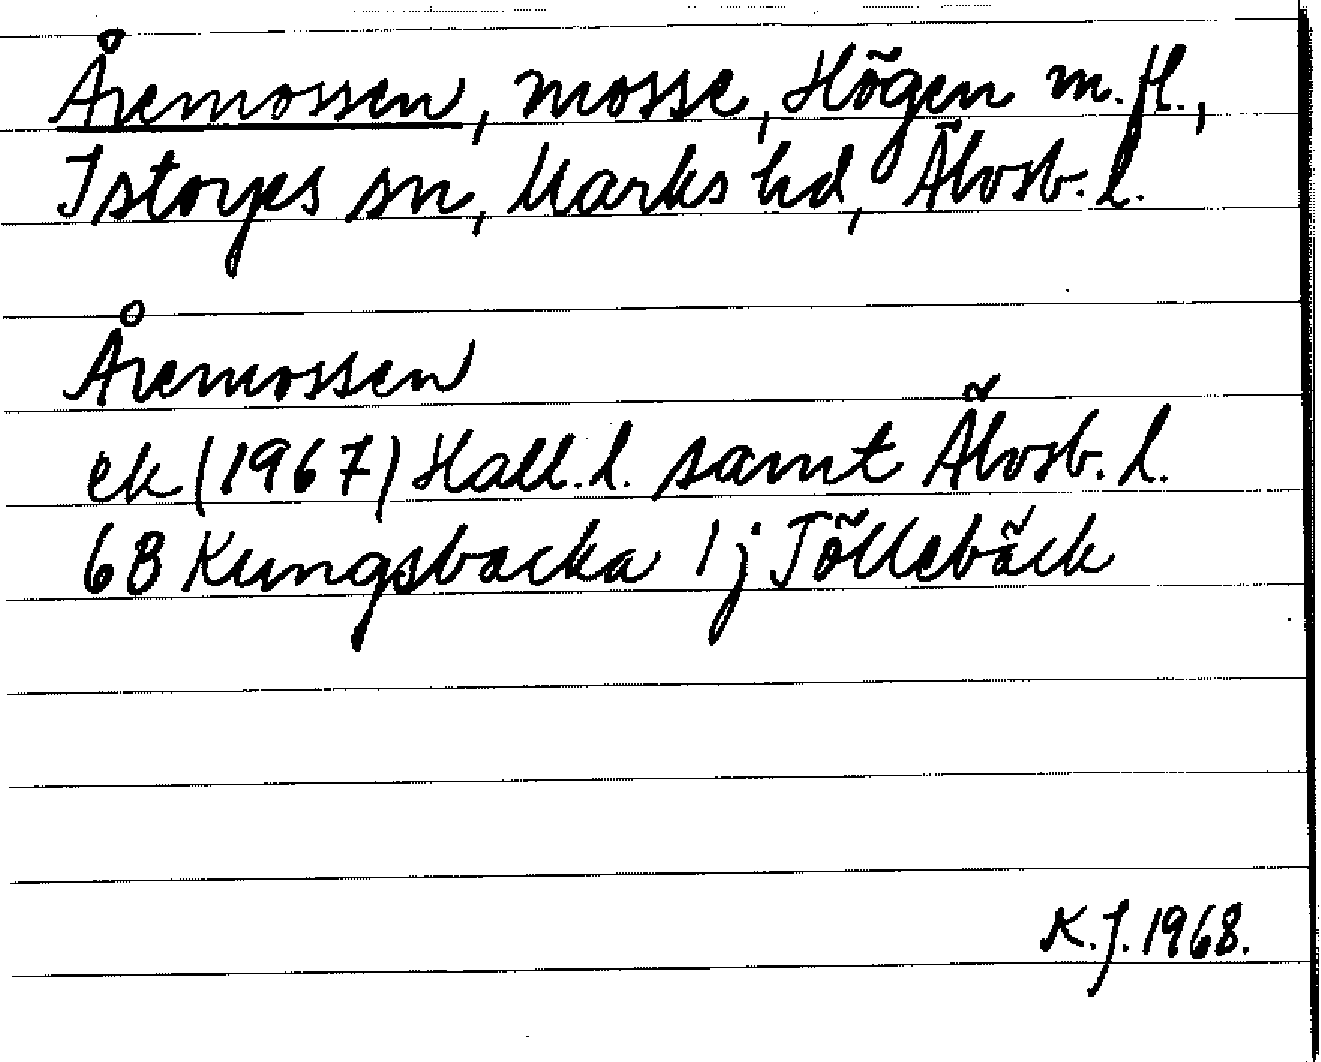 Åremossen, mosse, Högen m.fl.,
Istorps sn, Marks hd, Älvsb. l.
Åremossen
ek (1967) Hall. l. samt Älvsb. l.
6B Kungsbacka 1 j Töllebäck
K.J. 1968.